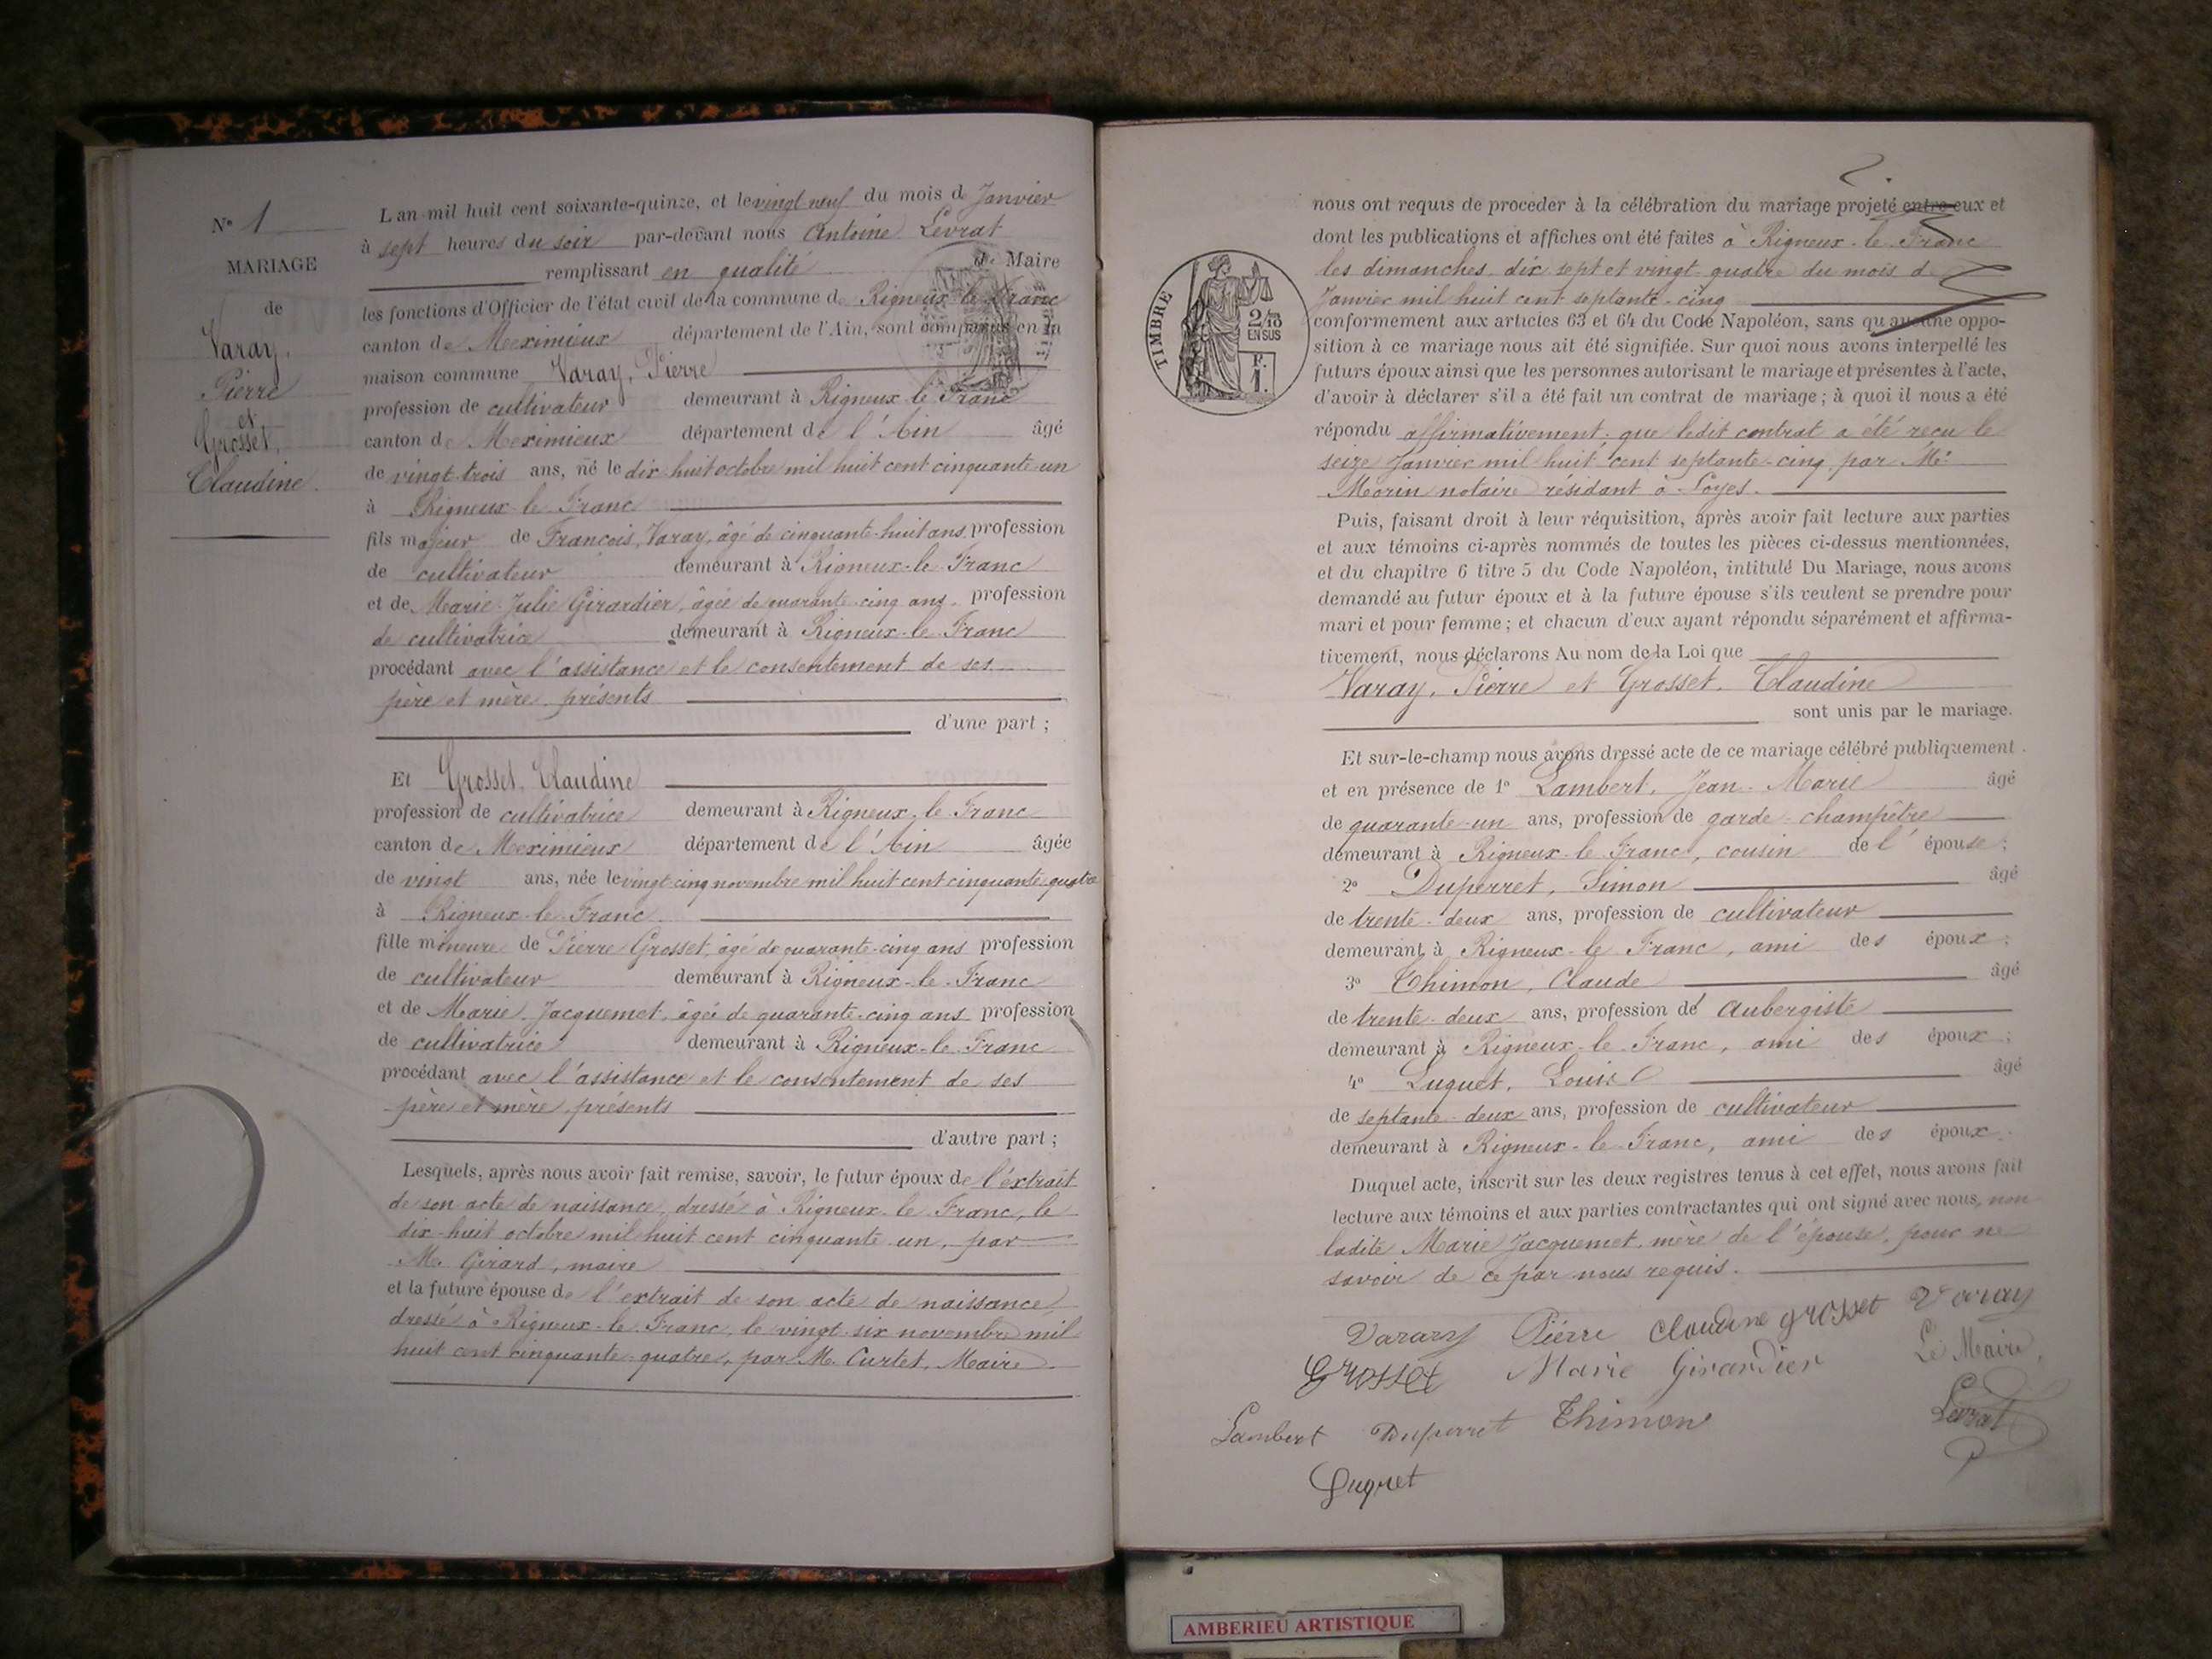 N° 1
MARIAGE
de
Varay,
Pierre
et
Grosset,
Claudine.
L'an mil huit cent soixante-quinze, et le vingt neuf du mois de Janvier
à sept heures du soir par-devant nous Antoine Levrat
remplissant en qualité de Maire
les fonctions d'Officier de l'état civil de la commune de Rigneux-le-Franc
canton de Meximieux département de l'Ain, sont comparus en la
maison commune Varay, Pierre
profession de cultivateur demeurant à Rigneux-le-Franc
canton de Meximieux département de l'Ain âgé
de vingt-trois ans, né le dix-huit octobre mil huit cent cinquante-un
à Rigneux-le-Franc
fils majeur de François Varay, âgé de cinquante-huit ans profession
de cultivateur demeurant à Rigneux-le-Franc
et de Marie-Julie Girardier, âgée de quarante-cinq ans, profession
de cultivatrice demeurant à Rigneux-le-Franc
procédant avec l'assistance et le consentement de ses
père et mère présents
d'une part ;
Et Grosset, Claudine
profession de cultivatrice demeurant à Rigneux-le-Franc
canton de Meximieux département de l'Ain âgée
de vingt ans, née le vingt cinq novembre mil huit cent cinquante-quatre
à Rigneux-le-Franc.
fille mineure de Pierre Grosset, âgé de quarante-cinq ans profession
de cultivateur demeurant à Rigneux-le-Franc
et de Marie Jacquemet, âgée de quarante-cinq ans profession
de cultivatrice demeurant à Rigneux-le-Franc
procédant avec l'assistance et le consentement de ses
père et mère présents
d'autre part ;
Lesquels, après nous avoir fait remise, savoir, le futur époux de l'extrait
de son acte de naissance, dressé à Rigneux-le-Franc, le
dix-huit octobre mil huit cent cinquante un, par
M. Girard, maire
et la future épouse de l'extrait de son acte de naissance
dressé à Rigneux-le-Franc, le vingt-six novembre mil
huit cent cinquante-quatre, par M. Curtet, Maire.
2.
nous ont requis de procéder à la célébration du mariage projeté entre eux et
dont les publications et affiches ont été faites à Rigneux-le-Franc
les dimanches dix sept et vingt-quatre du mois de
Janvier mil huit cent septante-cinq
conformément aux articles 63 et 64 du Code Napoléon, sans qu'aucune oppo-
sition à ce mariage nous ait été signifiée. Sur quoi nous avons interpellé les
futurs époux ainsi que les personnes autorisant le mariage et présentes à l'acte,
d'avoir à déclarer s'il a été fait un contrat de mariage ; à quoi il nous a été
répondu affirmativement; que ledit contrat a été reçu le
seize Janvier mil huit cent septante-cinq par Me
Morin notaire résidant à Loyes.
Puis, faisant droit à leur réquisition, après avoir fait lecture aux parties
et aux témoins ci-après nommés de toutes les pièces ci-dessus mentionnées,
et du chapitre 6 titre 5 du Code Napoléon, intitulé Du Mariage, nous avons
demandé au futur époux et à la future épouse s'ils veulent se prendre pour
mari et pour femme ; et chacun d'eux ayant répondu séparément et affirma-
tivement, nous déclarons Au nom de la Loi que
Varay, Pierre et Grosset, Claudine
sont unis par le mariage.
Et sur-le-champ nous avons dressé acte de ce mariage célébré publiquement
et en présence de 1° Lambert, Jean-Marie âgé
de quarante-un ans, profession de garde-champêtre
demeurant à Rigneux-le-Franc, cousin de l'épouse ;
2° Duperret, Simon âgé
de trente-deux ans, profession de cultivateur
demeurant à Rigneux-le-Franc, ami des époux ;
3° Thimon, Claude âgé
de trente-deux ans, profession de Aubergiste
demeurant à Rigneux-le-Franc, ami des époux ;
4° Luquet, Louis âgé
de septante-deux ans, profession de cultivateur
demeurant à Rigneux-le-Franc, ami des époux.
Duquel acte, inscrit sur les deux registres tenus à cet effet, nous avons fait
lecture aux témoins et aux parties contractantes qui ont signé avec nous, non
ladite Marie Jacquemet, mère de l'épouse, pour ne
savoir de ce par nous requis.
Vararz Piérre Claudine grosset Varay
Grosset Marie Girardier Le Maire,
Lambert Duperret Thimon Levrat
Luquet
TIMBRE
2/10
EN SUS
F.
1.
AMBERIEU ARTISTIQUE